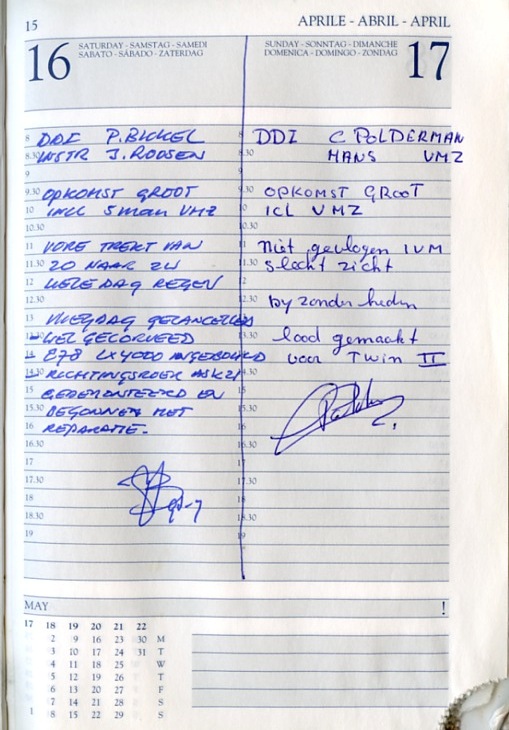 15
APRILE - ABRIL - APRIL
16
SATURDAY - SAMSTAG - SAMEDI
SABATO - SÁBADO - ZATERDAG
8 DDI P. BICKEL
8.30 INSTR J. ROOSEN
9
9.30 OPKOMST GROOT
10 INCL 5 man VMZ
10.30
11 VORE TREKT VAN
11.30 20 NAAR ZW
12 HELE DAG REGEN
12.30
13 VLIEGDAG GECANCELLED
13.30 WEL GELORVEED
14 E78 LX4000 INGEBOUWD
14.30 RICHTINGSROER ASK21
15 GEDEMONTEERD EN
15.30 BEGONNEN MET
16 REPARATIE.
16.30
17
17.30
18
18.30
19
SUNDAY - SONNTAG - DIMANCHE
DOMENICA - DOMINGO - ZONDAG
17
8 DDI C POLDERMAN
8.30 HANS VMZ
9.30 OPKOMST GROOT
10 ICL VMZ
10.30
11 Niet gevlogen IVM
11.30 slecht zicht
12
12.30 byzonder heden
13.30 lood gemaakt
voor Twin II
14.30
15
15.30
16.30
17
17.30
18
18.30
19
MAY !
17 18 19 20 21 22
2 9 16 23 30 M
3 10 17 24 31 T
4 11 18 25 W
5 12 19 26 T
6 13 20 27 F
7 14 21 28 S
1 8 15 22 29 S